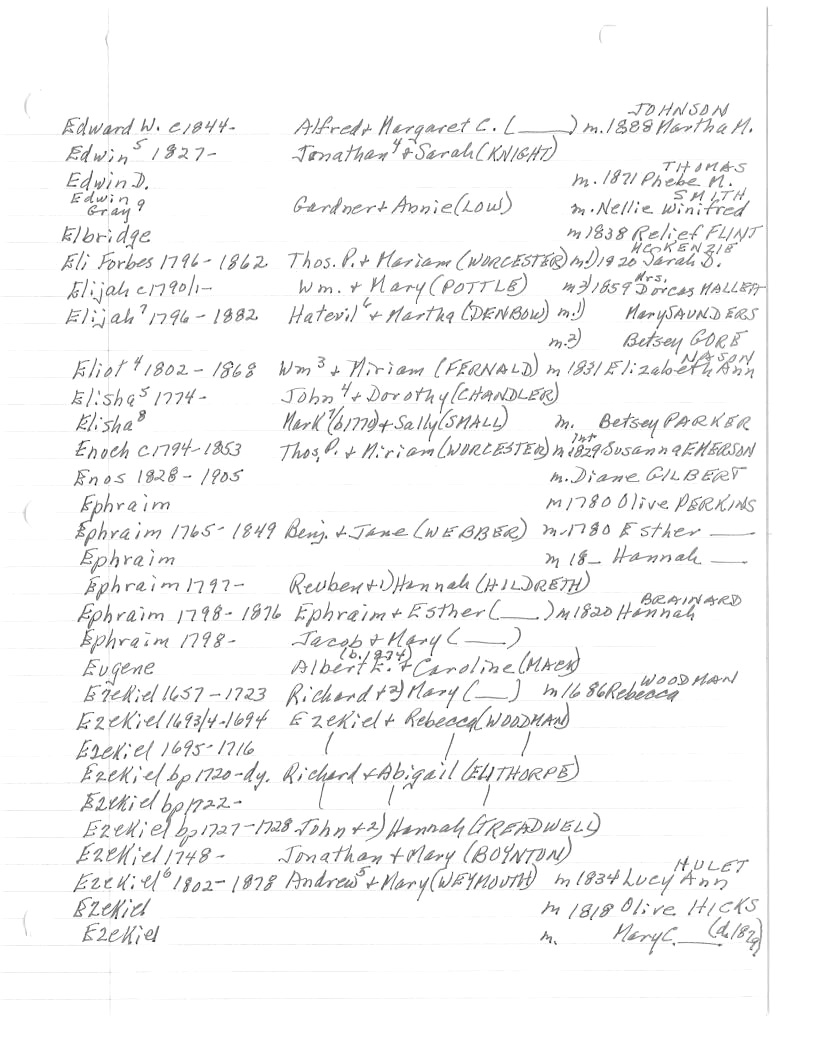 JOHNSON
Edward W. c1844- Alfred + Margaret C. (____) m. 1888 Martha M.
Edwin⁵ 1827- Jonathan⁴ + Sarah (KNIGHT)
THOMAS
Edwin D. m. 1871 Phebe M.
Edwin SMITH
Gray⁹ Gardner + Annie (LOW) m. Nellie Winifred
Elbridge m 1838 Relief FLINT
McKENZIE
Eli Forbes 1796-1862 Thos. P. + Mariam (WORCESTER) m 1) 1820 Sarah D.
Mrs.
Elijah c1790/1- Wm. + Mary (POTTLE) m 2) 1859 Dorcas MALLETT
Elijah⁷ 1796-1882 Hatevil⁶ + Martha (DENBOW) m. 1) Mary SAUNDERS
m. 2) Betsey GORE
NASON
Eliot⁴ 1802-1868 Wm³ + Miriam (FERNALD) m 1831 Elizabeth Ann
Elisha⁵ 1774- John⁴ + Dorothy (CHANDLER)
Elisha⁸ Mark⁷ (b1779) + Sally (SMALL) m. Betsey PARKER
Int
Enoch c1794-1853 Thos. P. + Miriam (WORCESTER) m 1829 Susanna EMERSON
Enos 1828-1905 m. Diane GILBERT
Ephraim m 1780 Olive PERKINS
Ephraim 1765-1849 Benj. + Jane (WEBBER) m. 1780 Esther ____
Ephraim m 18_ Hannah ____
Ephraim 1797- Reuben + 1) Hannah (HILDRETH)
BRAINARD
Ephraim 1798-1876 Ephraim + Esther (____) m 1820 Hannah
Ephraim 1798- Jacob + Mary (____)
(b. 1834)
Eugene Albert E. + Caroline (MACK)
WOODMAN
Ezekiel 1657-1723 Richard + 2) Mary (____) m 1686 Rebecca
Ezekiel 1693/4-1694 Ezekiel + Rebecca (WOODMAN)
Ezekiel 1695-1716 / / /
Ezekiel bp 1720-dy. Richard + Abigail (ELITHORPE)
Ezekiel bp 1722- / / /
Ezekiel bp 1727-1728 John + 2) Hannah (TREADWELL)
Ezekiel 1748- Jonathan + Mary (BOYNTON)
HULET
Ezekiel⁶ 1802-1878 Andrew⁵ + Mary (WEYMOUTH) m 1834 Lucy Ann
Ezekiel m 1818 Olive HICKS
Ezekiel m. Mary C. ____ (d. 1879)